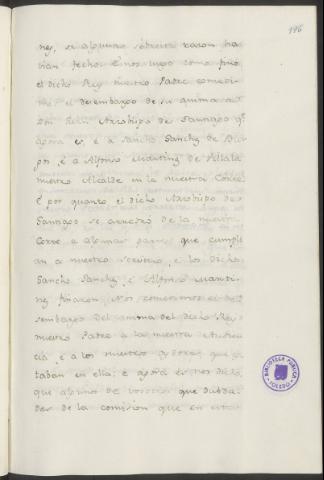 196
nes, si algunas sobre esta razon ha
vian fecho. E nos luego como finó
el dicho Rey nuestro Padre cometi
el desembargo de su anima a
Don Arzobispo de Santiago q.
agora es, e a Sancho Sanchez de Bur
gos, e a Alfonso Martinez de
nuestro Alcalde en la nuestra Corte
E por quanto el dicho Arzobispo de
Santiago se arredró de la nuestra
Corte a algunas partes que cumpli
an a nuestro servicio, e los dichos
Sancho Sanchez, e Alfonso Marti
nez finaron, Nos cometimos el de
sembargo del anima del dicho Rey
nuestro Padre a la nuestra Audien
cia, e a los nuestros oydores que es
taban en ella; e agora es nos dicho
que algunos de vosotros que dubda
des de la comision que en esta
BIBLIOTECA PUBLICA
TOLEDO